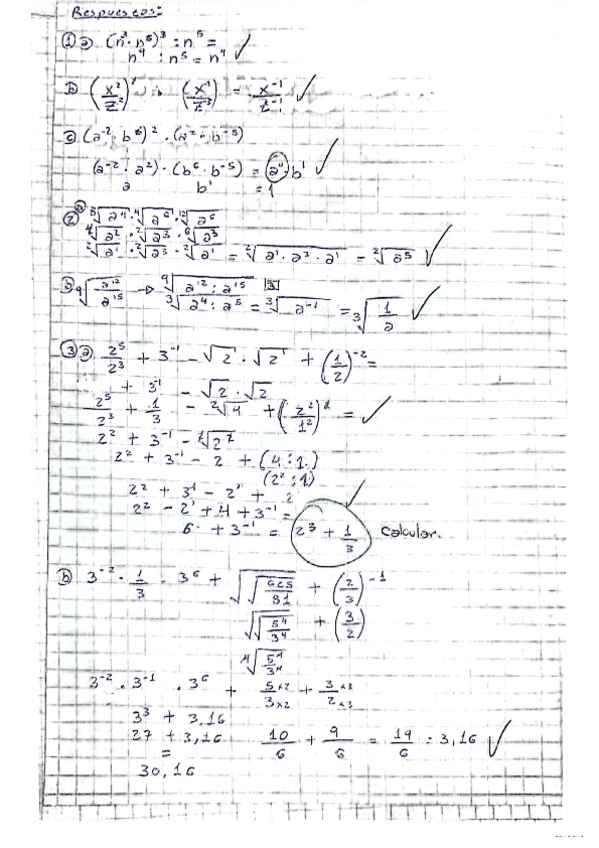 Respuestas:
① a (n³·n⁶)³ : n⁵ =
n⁹ : n⁵ = n⁴
b (x²/z²) : (x⁻¹/z⁻³) = x⁻¹/z⁻¹
c (a⁻²·b⁶)² · (a²·b⁻⁵)
(a⁻²·a²)·(b⁶·b⁻⁵) = a⁰·b¹
b¹ = 1
⁴√a² · ²√a³ · ⁶√a³
²√a¹ · ²√a³ · ²√a¹ = ²√a¹·a²·a¹ = ²√a⁵
⁹√a¹²/a¹⁵ → ⁹√a¹² : a¹⁵ |3|
³√a⁴ : a⁵ = ³√a⁻¹ = ³√1/a
③ a 2⁵/2³ + 3⁻¹ - √2 · √2 + (1/2)⁻² =
+ 3⁻¹ - √2 · √2
2⁵/2³ + 1/3 - ²√4 + (2²/1²) =
2² + 3⁻¹ - ²√2²
2² + 3⁻¹ - 2 + (4:1)
(2²:1)
2² + 3⁻¹ - 2¹ + 2
2² - 2¹ + 4 + 3⁻¹ =
6 + 3⁻¹ = 2³ + 1/3 Calcular.
b 3⁻² · 1/3 · 3⁶ + √√625/81 + (2/3)⁻¹
√√5⁴/3⁴ + (3/2)
⁴√5⁴/3⁴
3⁻² · 3⁻¹ · 3⁶ + 5×2/3×2 + 3×3/2×3
3³ + 3,16
27 + 3,16 10/6 + 9/6 = 19/6 = 3,16
=
30,16